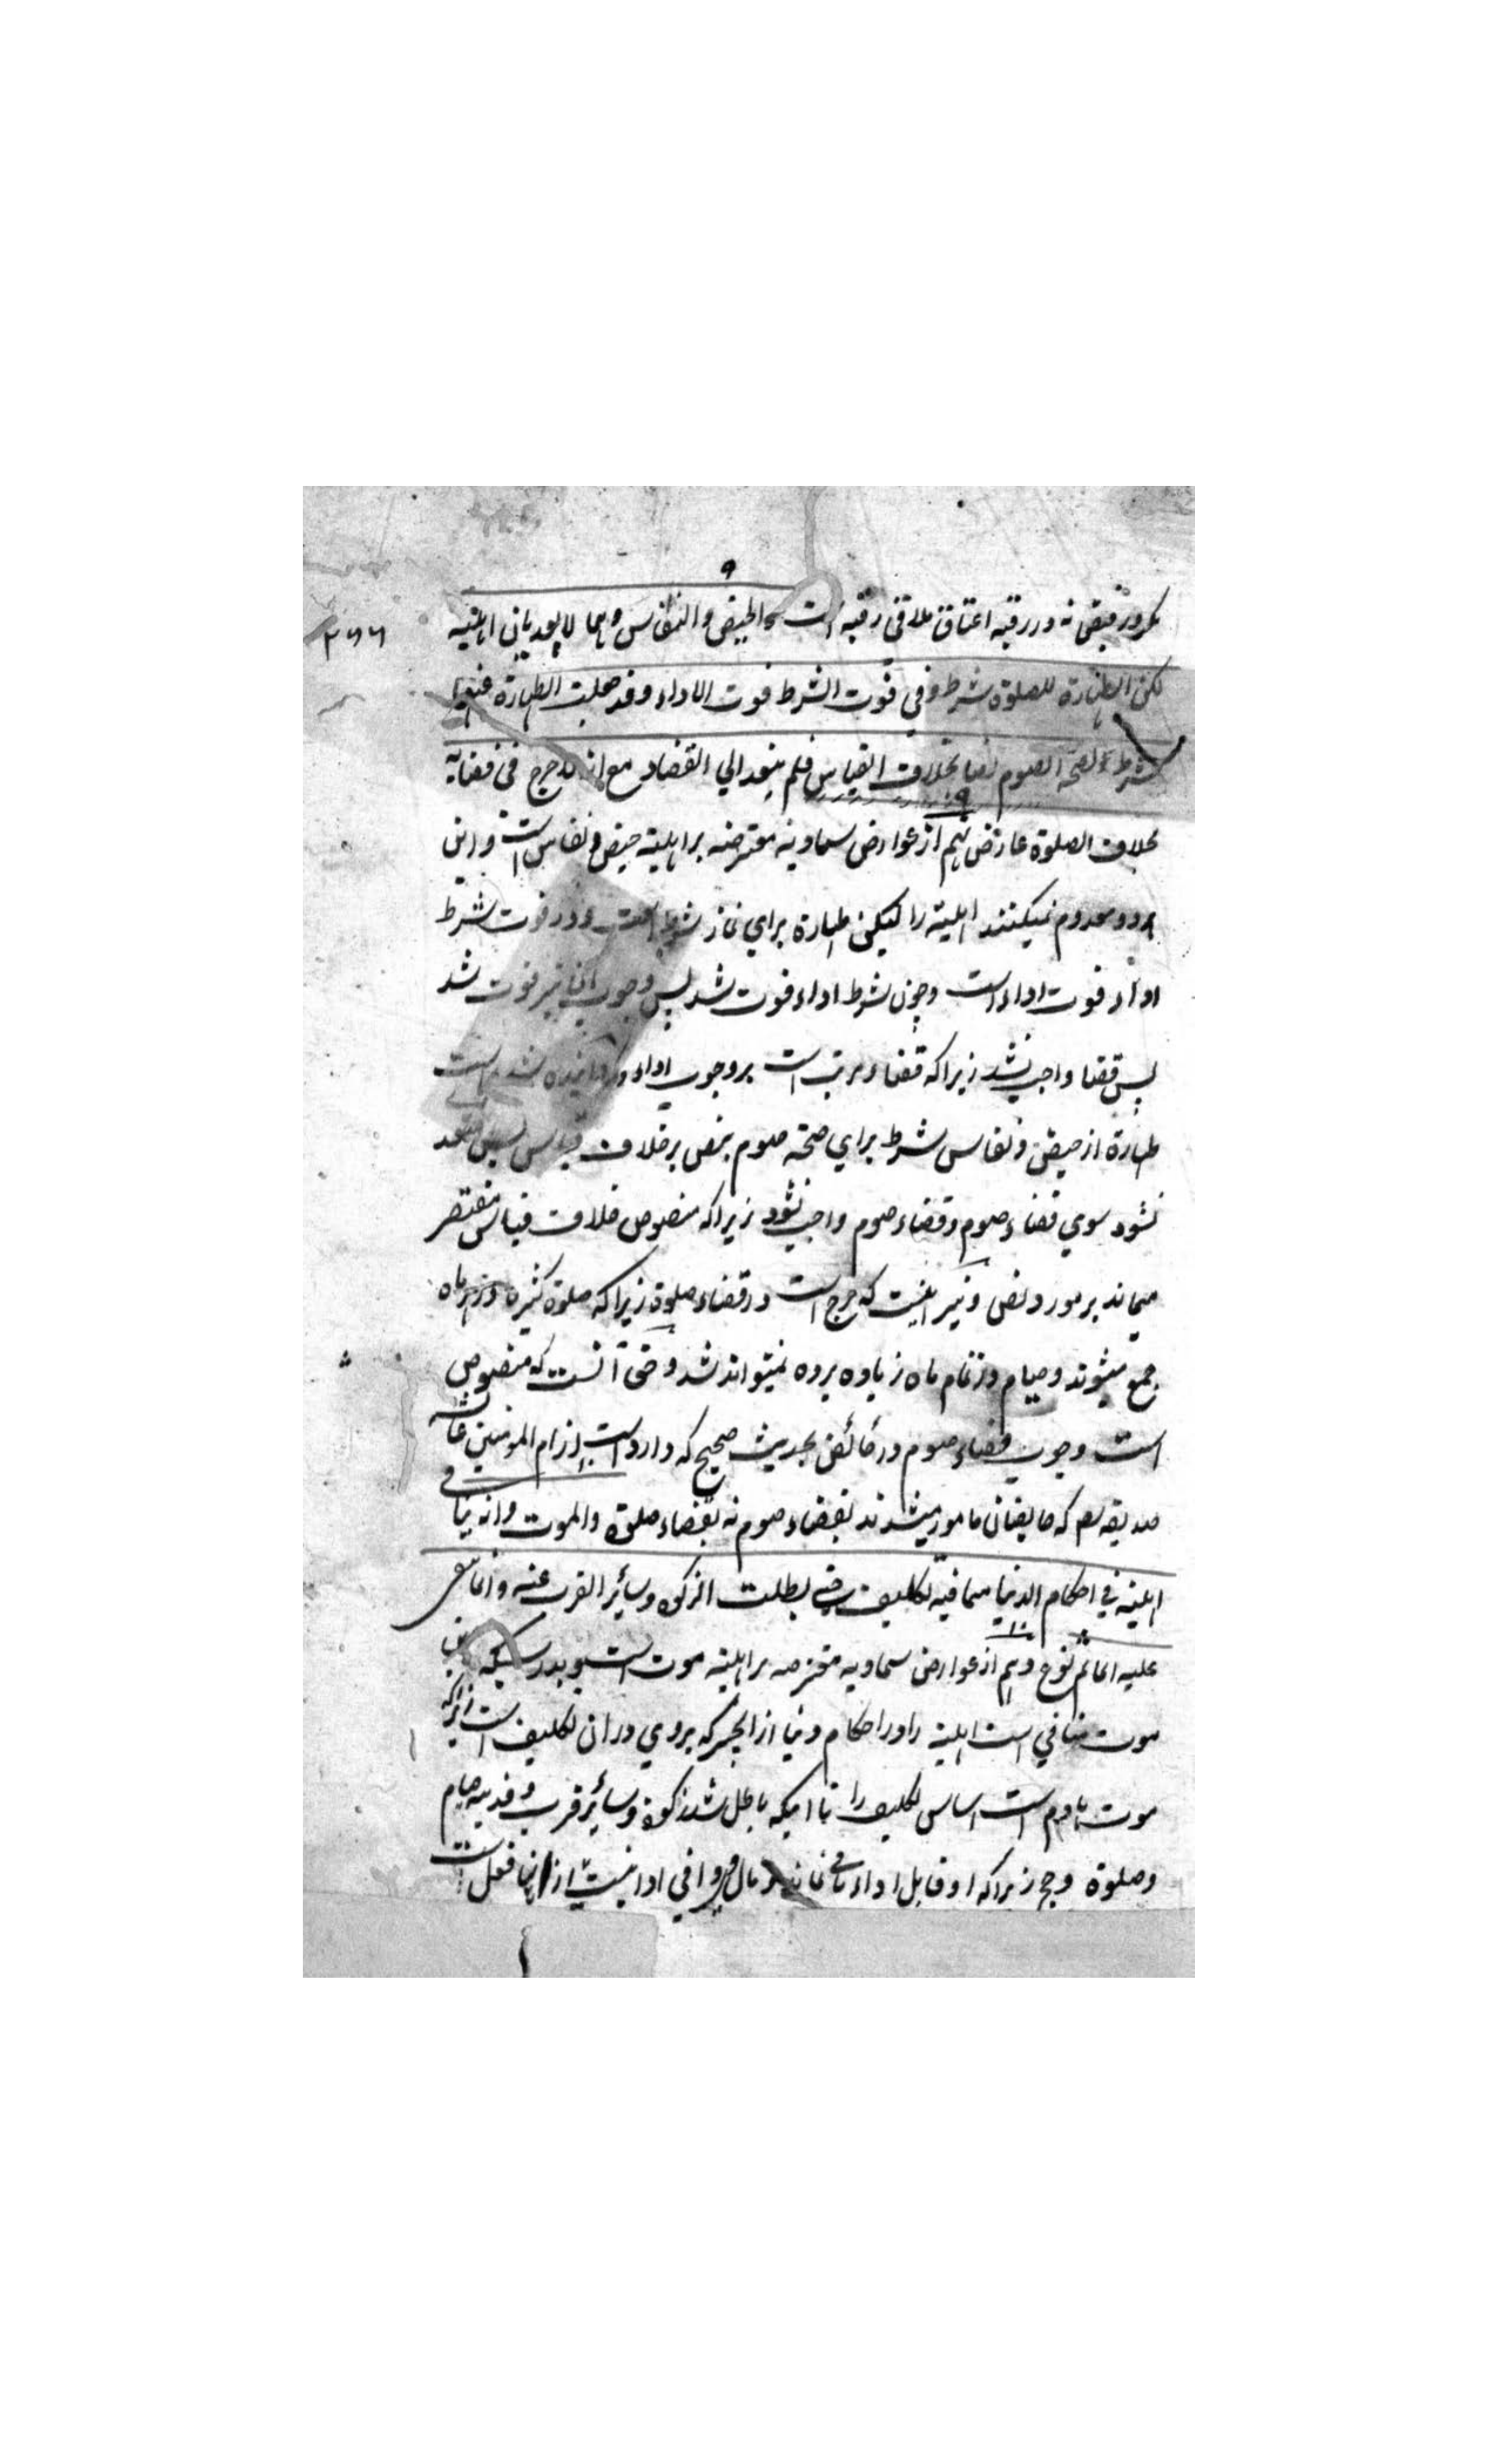 ۹
مگر در رقیق نه و در رقبه اعتاق ملاقی رقبه است والحیض والنفاس وهما لا یعدمان اهلیته
۲۶۶
لکن الطهارة للصلوة شرط وفی فوت الشرط فوت الاداء وقد جعلت الطهارة عنهما
شرطا لصحة الصوم نصا بخلاف القیاس فلم یتعد الی القضاء مع انه لا حرج فی قضایه
۹
بخلاف الصلوة عارض نهم از عوارض سماویه معترضه بر اهلیته حیض و نفاس است و این
هر دو معدوم نمیکنند اهلیته را لیکن طهارة برای نماز شرط است و در فوت شرط
اداء فوت اداء است و چون شرط اداء فوت شد پس وجوب آن نیز فوت شد
پس قضا واجب نشد زیرا که قضاء مرتب است بر وجوب اداء و گردانیده شده است
طهارة از حیض و نفاس شرط برای صحة صوم بنص بر خلاف قیاس پس متعد
نشود سوی قضاء صوم و قضاء صوم واجب نشود زیرا که منصوص خلاف قیاس مقتصر
میماند بر مورد نص و نیز اینست که حرج است در قضاء صلوة زیرا که صلوة کثیره در هر ماه
جمع میشوند و صیام در تمام ماه زیاده بر ده نمیتواند شد و حق آنست که منصوص
است وجوب قضاء صوم در حائض بحدیث صحیح که وارد است از ام المؤمنین عائشه
صدیقه رض که حایضان مامور میشدند بقضاء صوم نه بقضاء صلوة والموت وانه ینافی
اهلیته فی احکام الدنیا مما فیه تکلیف حتی بطلت الزکوة وسایر القرب عنه وانما یبقی
۱۰
علیه الماثم نوع دهم از عوارض سماویه معترضه بر اهلیته موت است و بدرستیکه این
موت منافی است اهلیته را در احکام دنیا از انچیز که بروی در ان تکلیف است زیرا که
موت هادم است اساس تکلیف را تا اینکه باطل شد زکوة و سایر قرب و فدیه صیام
وصلوة و حج زیرا که او قابل اداء باقی نماند و مال وافی ادا نیست از اینها فعل است